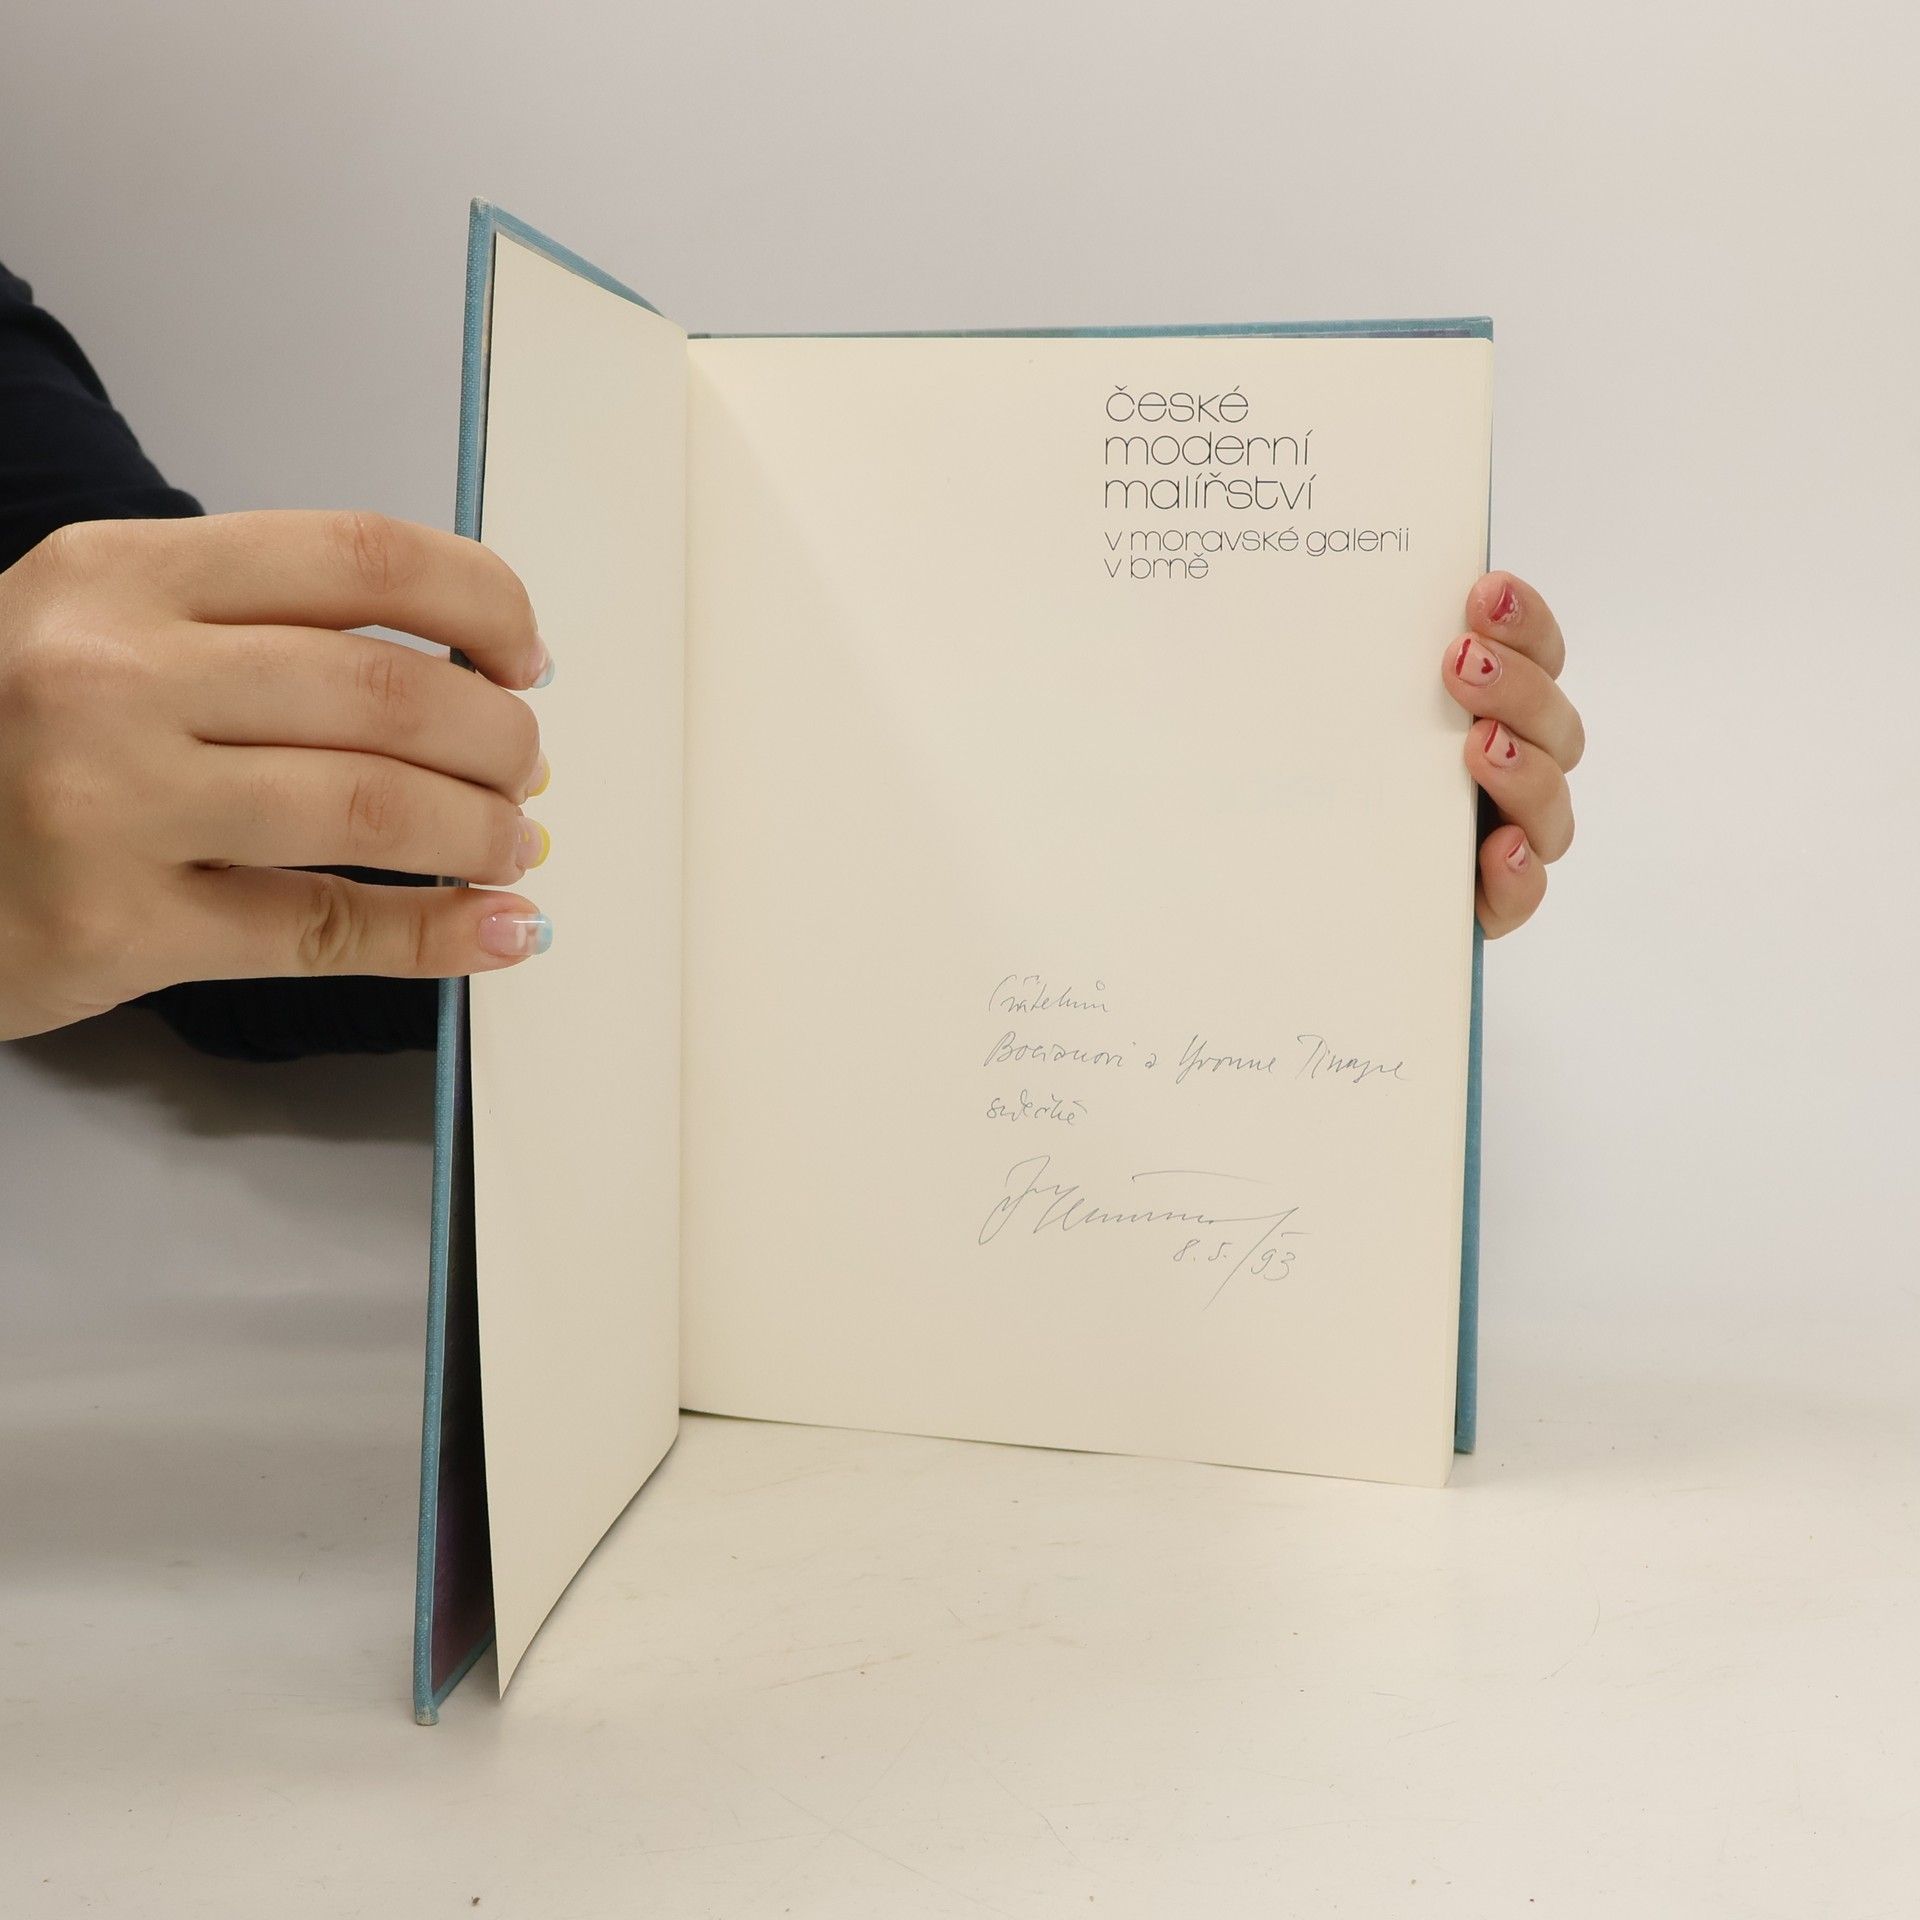 české
moderní
malířství
v moravské galerii
v brně
Přátelům
a Yvonne
srdečně
8. 5. / 93